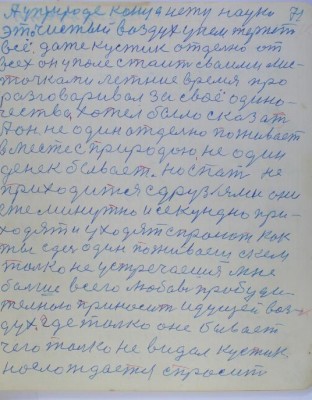 А у природе конца нету науки 71
это чистый воздух у неи терпеть
всё, даже кустик отделно от
всех он у поле стаит своими лис-
точками летние время про
разговаривал за своё одино-
чества, хотел было сказат
А он не один отделно поживает
в месте с природою, не один
денек бывает. но спат не
приходится с друзьями они
еже минутно и секундно при-
ходят и уходят спрошот как
ты сдеся один поживаеш с кем
толко не устречаешя мне
болше всего любовь пробуди-
телною приносит идущей воз-
дух, где толко оне бывает
чего толко не видал кустик.
нослождается спросит